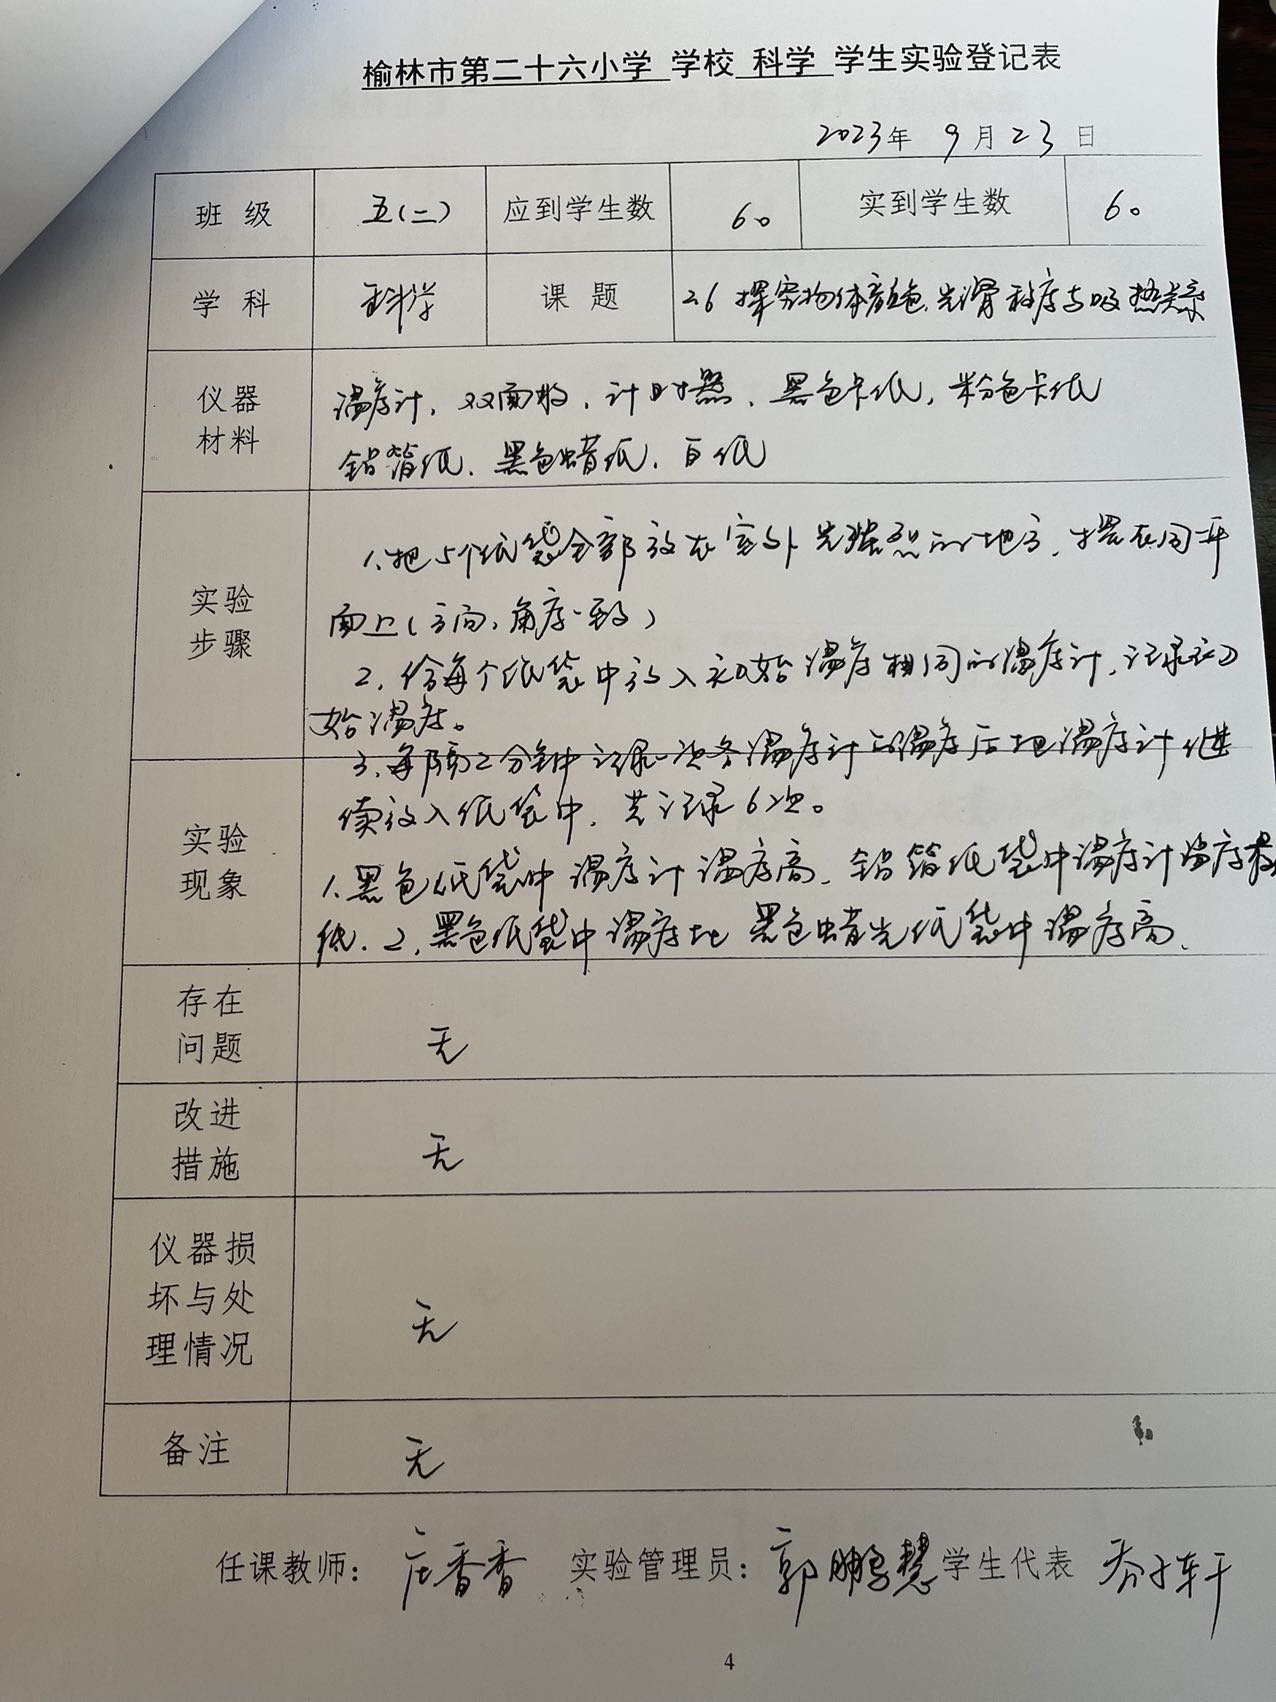 榆林市第二十六小学 学校 科学 学生实验登记表
2023年 9月23日
班 级 五(二) 应到学生数 60 实到学生数 60
学 科 科学 课 题 26 探究物体颜色、光滑程度与吸热关系
仪器材料 温度计, 双面胶, 计时器、黑色卡纸, 粉色卡纸
铝箔纸、黑色蜡光纸、白纸
实验步骤 1、把5个纸袋全部放在室外光强烈的地方、摆在同平
面上(方向、角度一致)
2、给每个纸袋中放入初始温度相同的温度计, 记录初
始温度。
3、每隔2分钟记录一次各温度计的温度后把温度计继
续放入纸袋中, 共记录6次。
实验现象 1、黑色纸袋中温度计温度高、铝箔纸袋中温度计温度最
低. 2、黑色纸袋中温度比黑色蜡光纸袋中温度高、
存在问题 无
改进措施 无
仪器损坏与处理情况 无
备注 无
任课教师: 庄香香 实验管理员: 郭鹏慧 学生代表 子轩
4